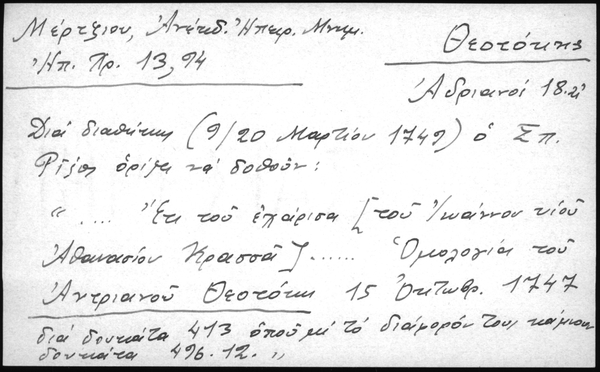 Μέρτζιου, Ἀνέκδ. Ἠπειρ. Μνημ.
Ἠπ. Χρ. 13, 94
Θεοτόκης
Ἀδριανοί 18.αἰ
Διά διαθήκης (9/20 Μαρτίου 1749) ὁ Σπ.
Ρίζος ὁρίζει νά δοθοῦν:
".... Ἔτι τοῦ ἐχάρισα [τοῦ Ἰωάννου υἱοῦ
Ἀθανασίου Κρασσᾶ]...... Ὁμολογία τοῦ
Ἀντριανοῦ Θεοτόκη 15 Ὀκτωβρ. 1747
διά δουκάτα 413 ὁποῦ μέ τό διάφορόν τους κάμνουν
δουκάτα 496.12."